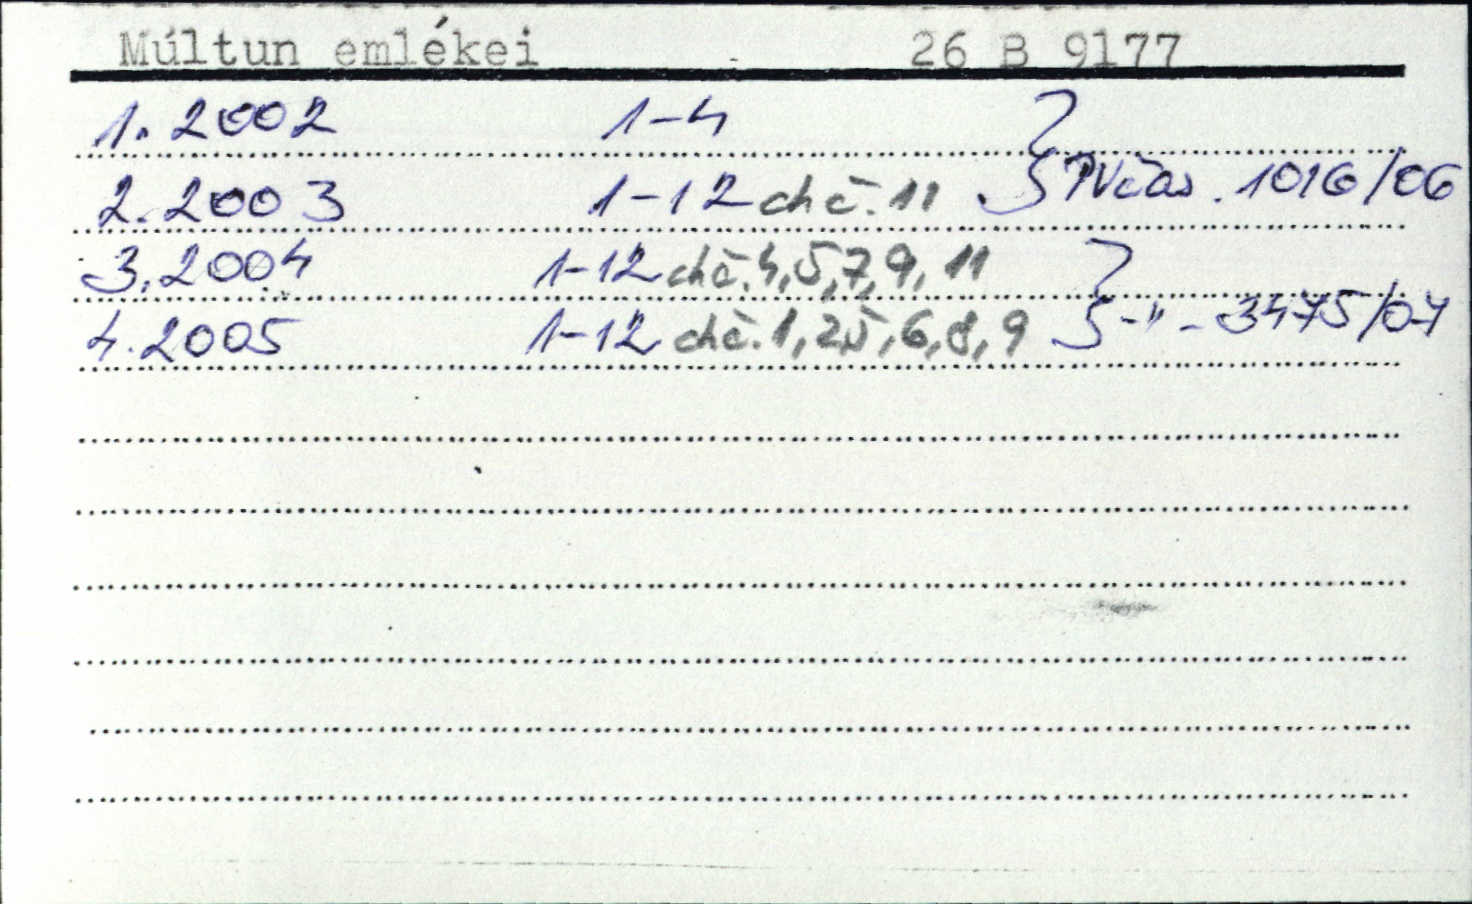 Múltun emlékei 26 B 9177
1. 2002 1-4 }
2. 2003 1-12 chč. 11 } PVčas. 1016/06
3. 2004 1-12 chč. 4, 5, 7, 9, 11 }
4. 2005 1-12 chč. 1, 2, 5, 6, 8, 9 } -"- 3475/07